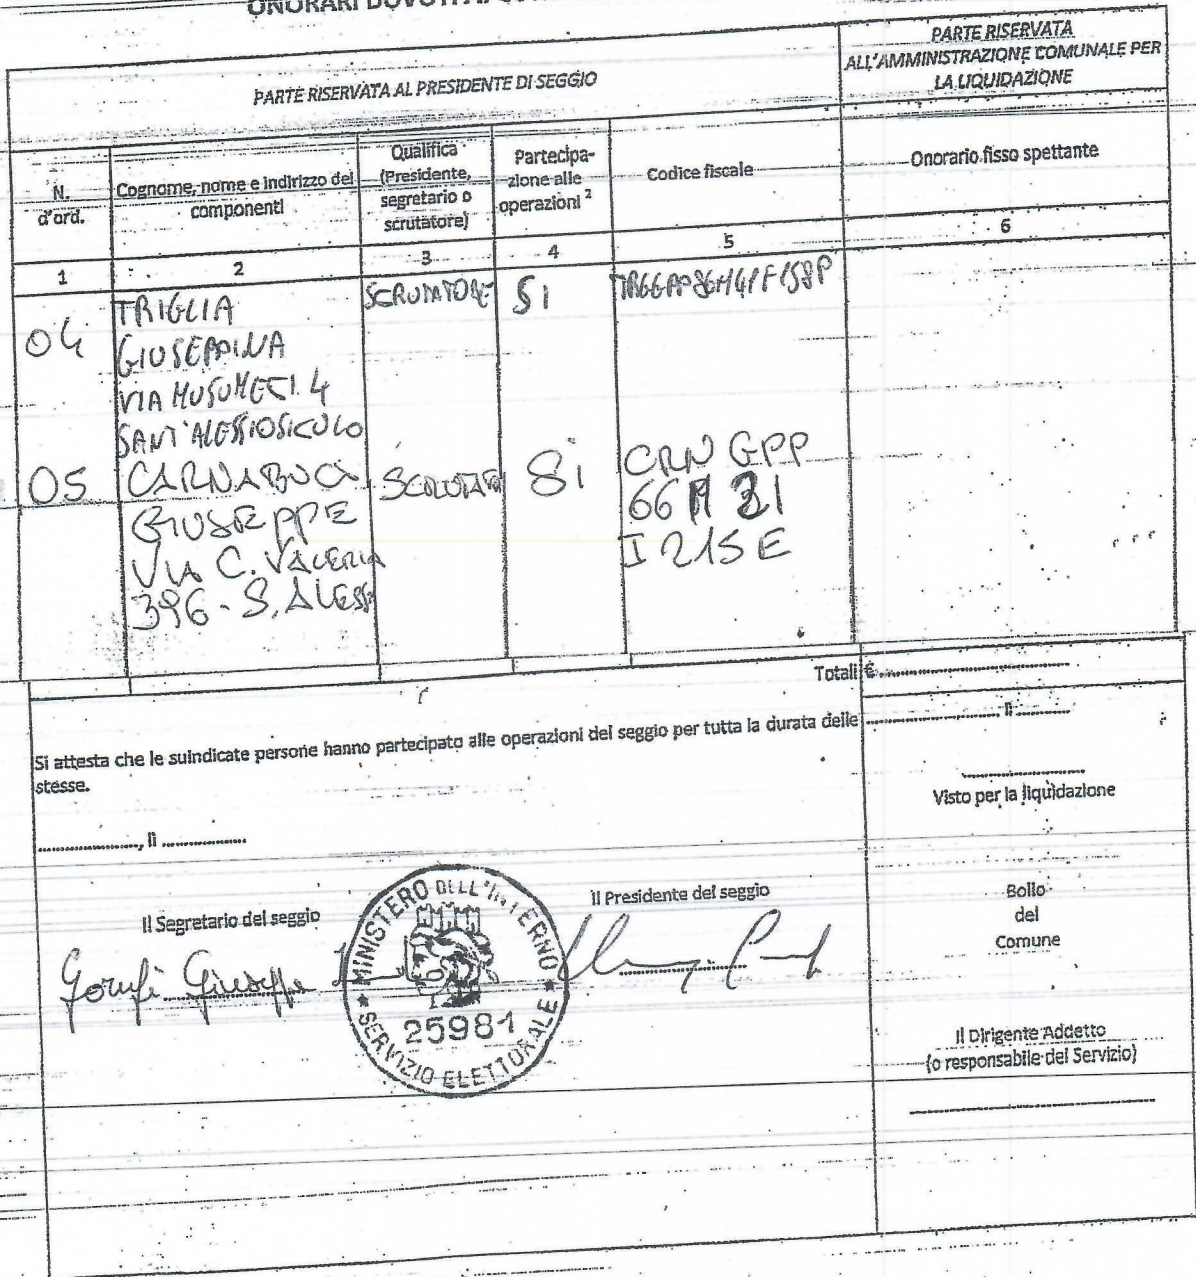 PARTE RISERVATA AL PRESIDENTE DI SEGGIO
PARTE RISERVATA
ALL'AMMINISTRAZIONE COMUNALE PER
LA LIQUIDAZIONE
N.
d'ord.
Cognome, nome e indirizzo dei
componenti
Qualifica
(Presidente,
segretario o
scrutatore)
Partecipa-
zione alle
operazioni 2
Codice fiscale
Onorario fisso spettante
1
2
3
4
5
6
04
TRIGLIA
GIUSEPPINA
VIA MUSUMECI 4
SANT'ALESSIOSICULO
SCRUTATORE
SI
05
CARNABUCI
GIUSEPPE
VIA C. VALERIA
396 - S. ALESS
Si
CRN GPP
66
I 215 E
Totali €
Si attesta che le suindicate persone hanno partecipato alle operazioni del seggio per tutta la durata delle
stesse.
......................, lì ..................
......................, lì ..................
Visto per la liquidazione
Il Segretario del seggio
Giuseppe
MINISTERO DELL'INTERNO
25981
SERVIZIO ELETTORALE
Il Presidente del seggio
Bollo
del
Comune
Il Dirigente Addetto
(o responsabile del Servizio)